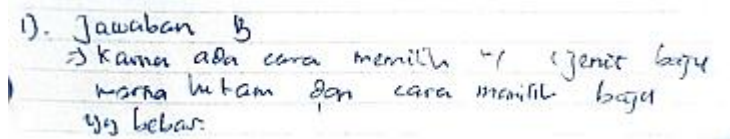 1). Jawaban B
⇒ Karna ada cara memilih 4 (jenit baju
warna hitam dan cara memilih baju
yg bebas.